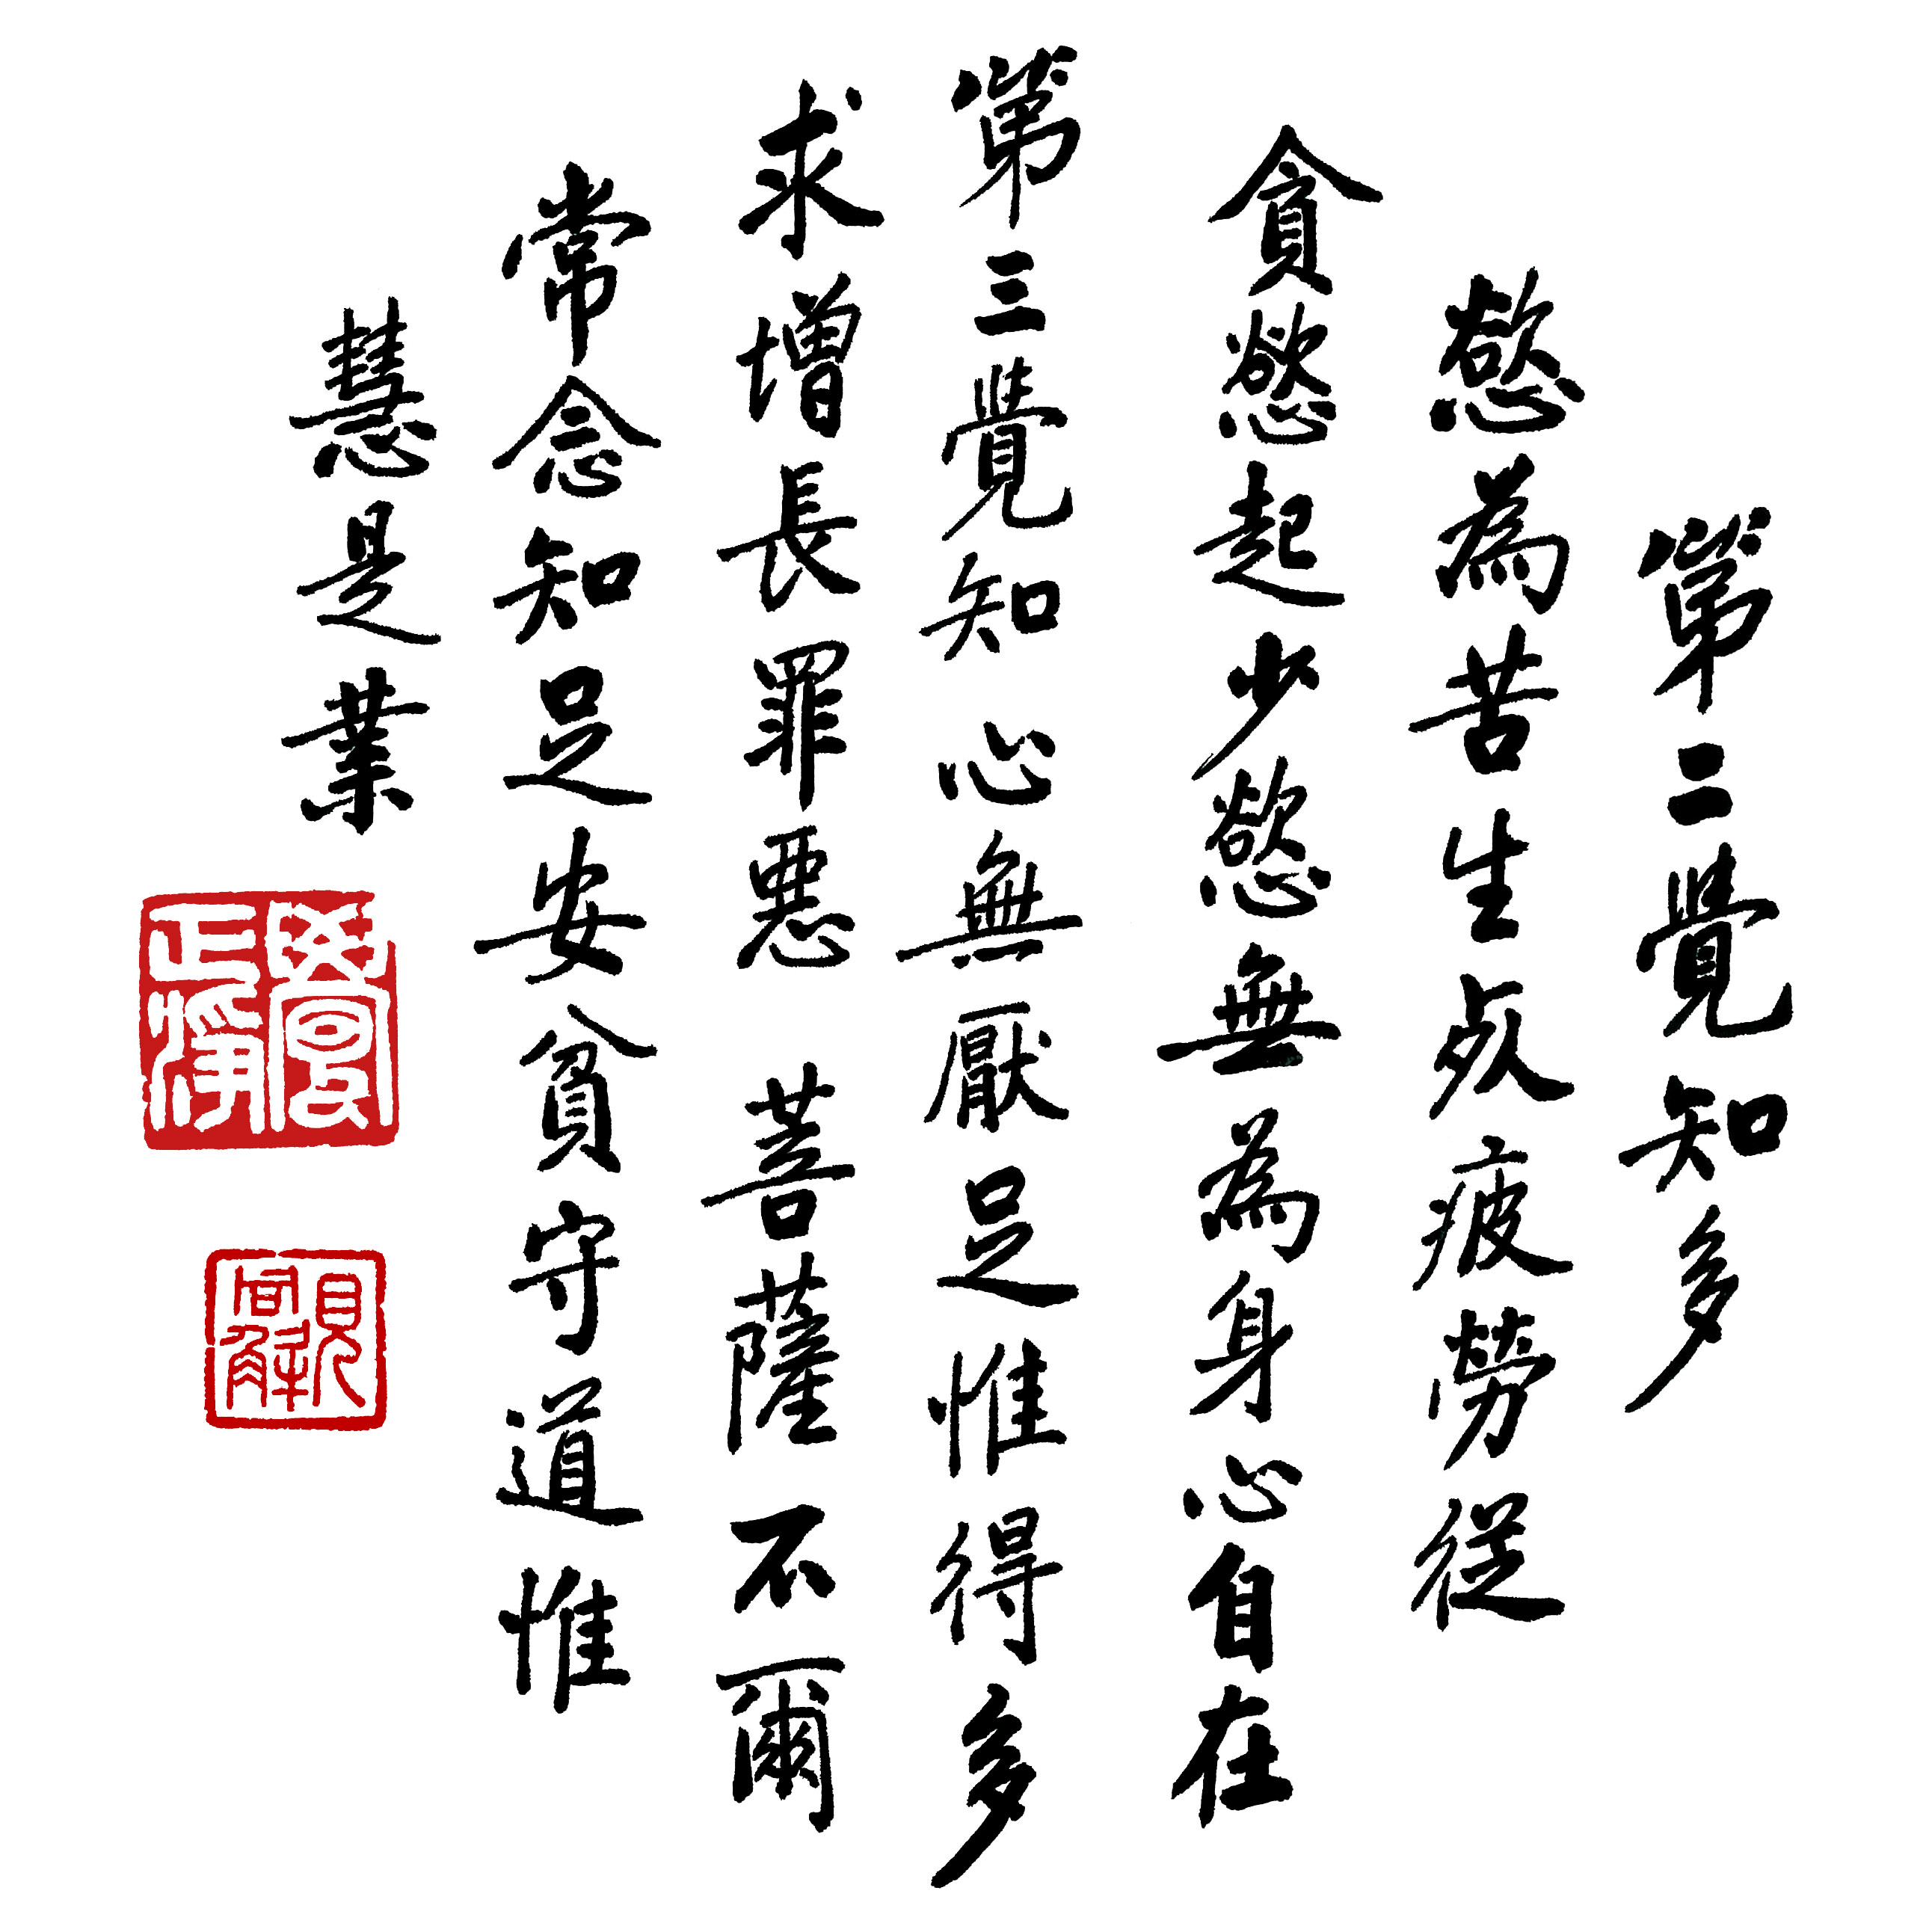 第二覺知多
慾為苦生死疲勞從
貪慾起少慾無為身心自在
第三覺知心無厭足惟得多
求增長罪惡菩薩不爾
常念知足安貧守道惟
慧是業